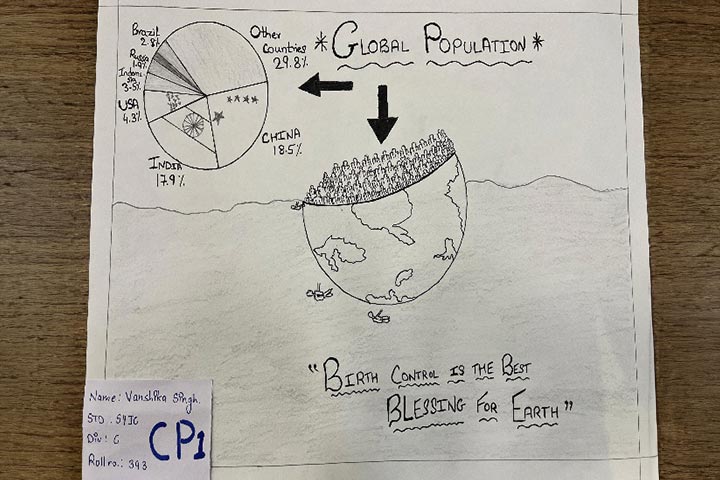 *GLOBAL POPULATION*
Brazil
2.8%
Russia
1.9%
Indone
sia
3.5%
USA
4.3%
INDIA
17.9%
CHINA
18.5%
Other
Countries
29.8%
"BIRTH CONTROL IS THE BEST
BLESSING FOR EARTH"
Name: Vanshika Singh.
STD: SYJC
Div: C
Roll no.: 393
CP1